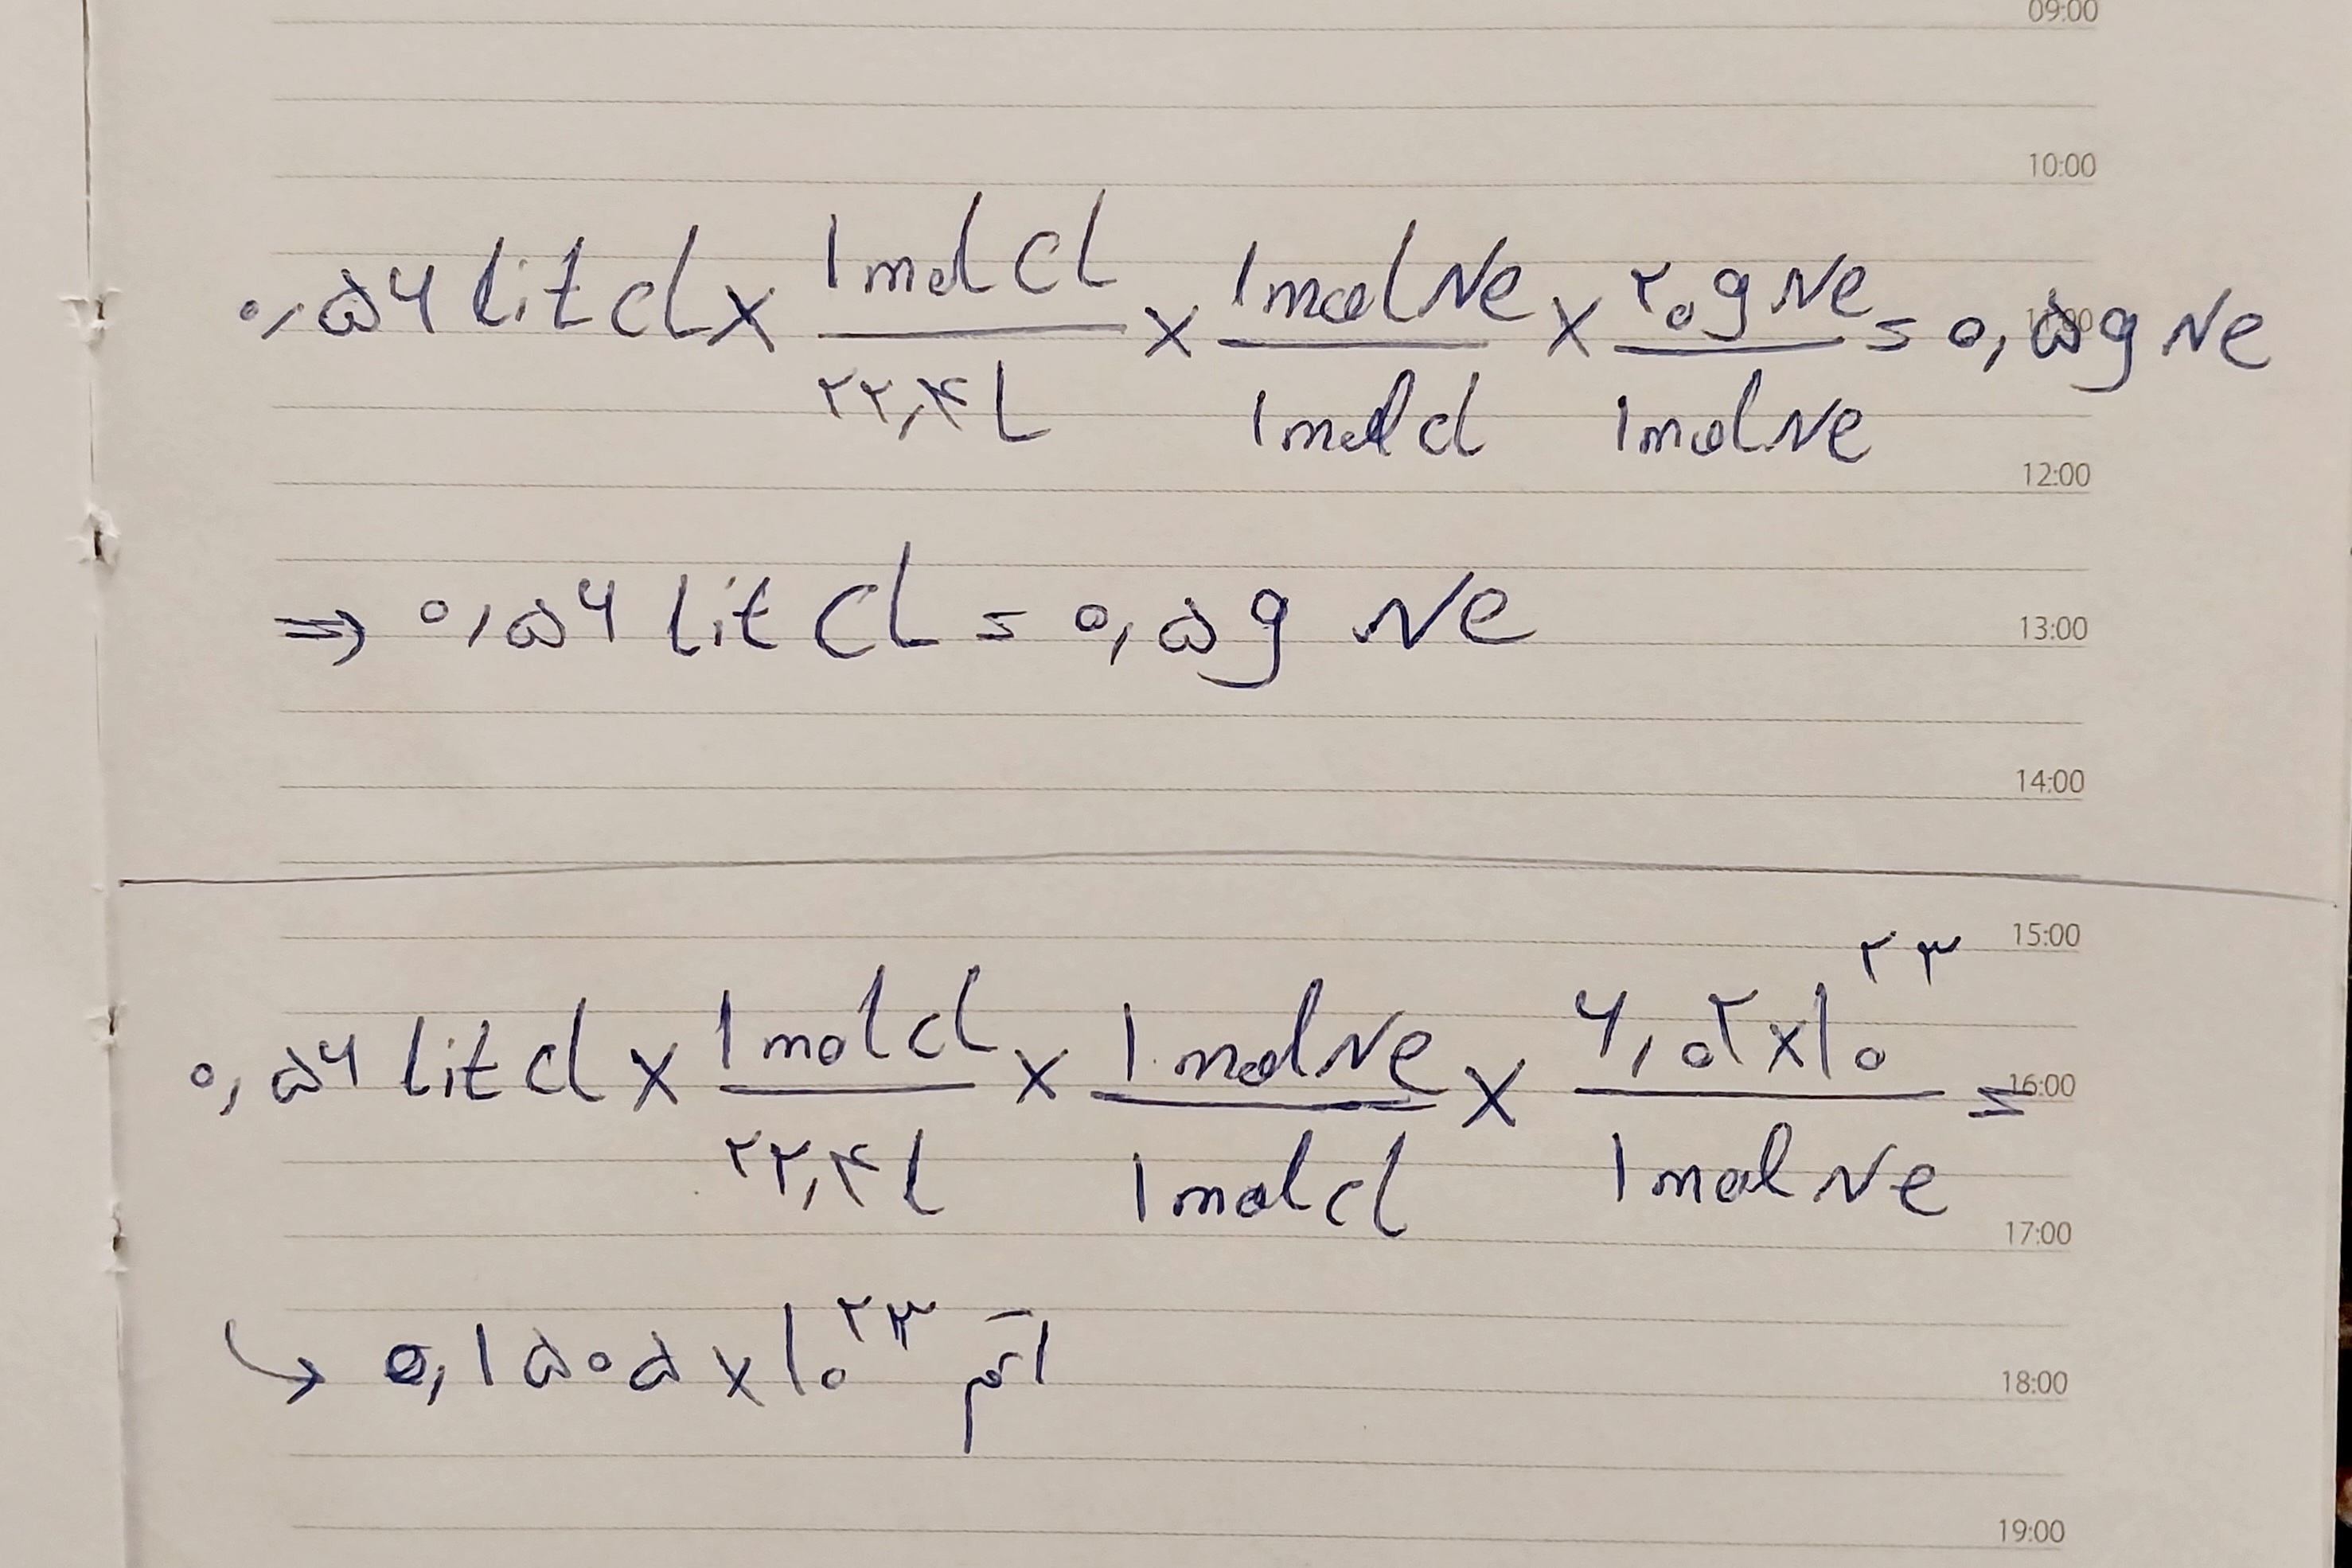 09:00
10:00
۰,۵۶ lit cl × 1 mol Cl / ۲۲,۴ L × 1 mol Ne / 1 mol cl × ۲۰ g Ne / 1 mol Ne = ۰,۵ g Ne
11:00
12:00
⇒ ۰,۵۶ lit CL = ۰,۵ g Ne
13:00
14:00
15:00
۰,۵۶ lit cl × 1 mol cl / ۲۲,۴ L × 1 mol Ne / 1 mol cl × ۶,۰۲ × ۱۰^۲۳ / 1 mol Ne =
16:00
17:00
↳ ۰,۱۵۰۵ × ۱۰^۲۳ اتم
18:00
19:00